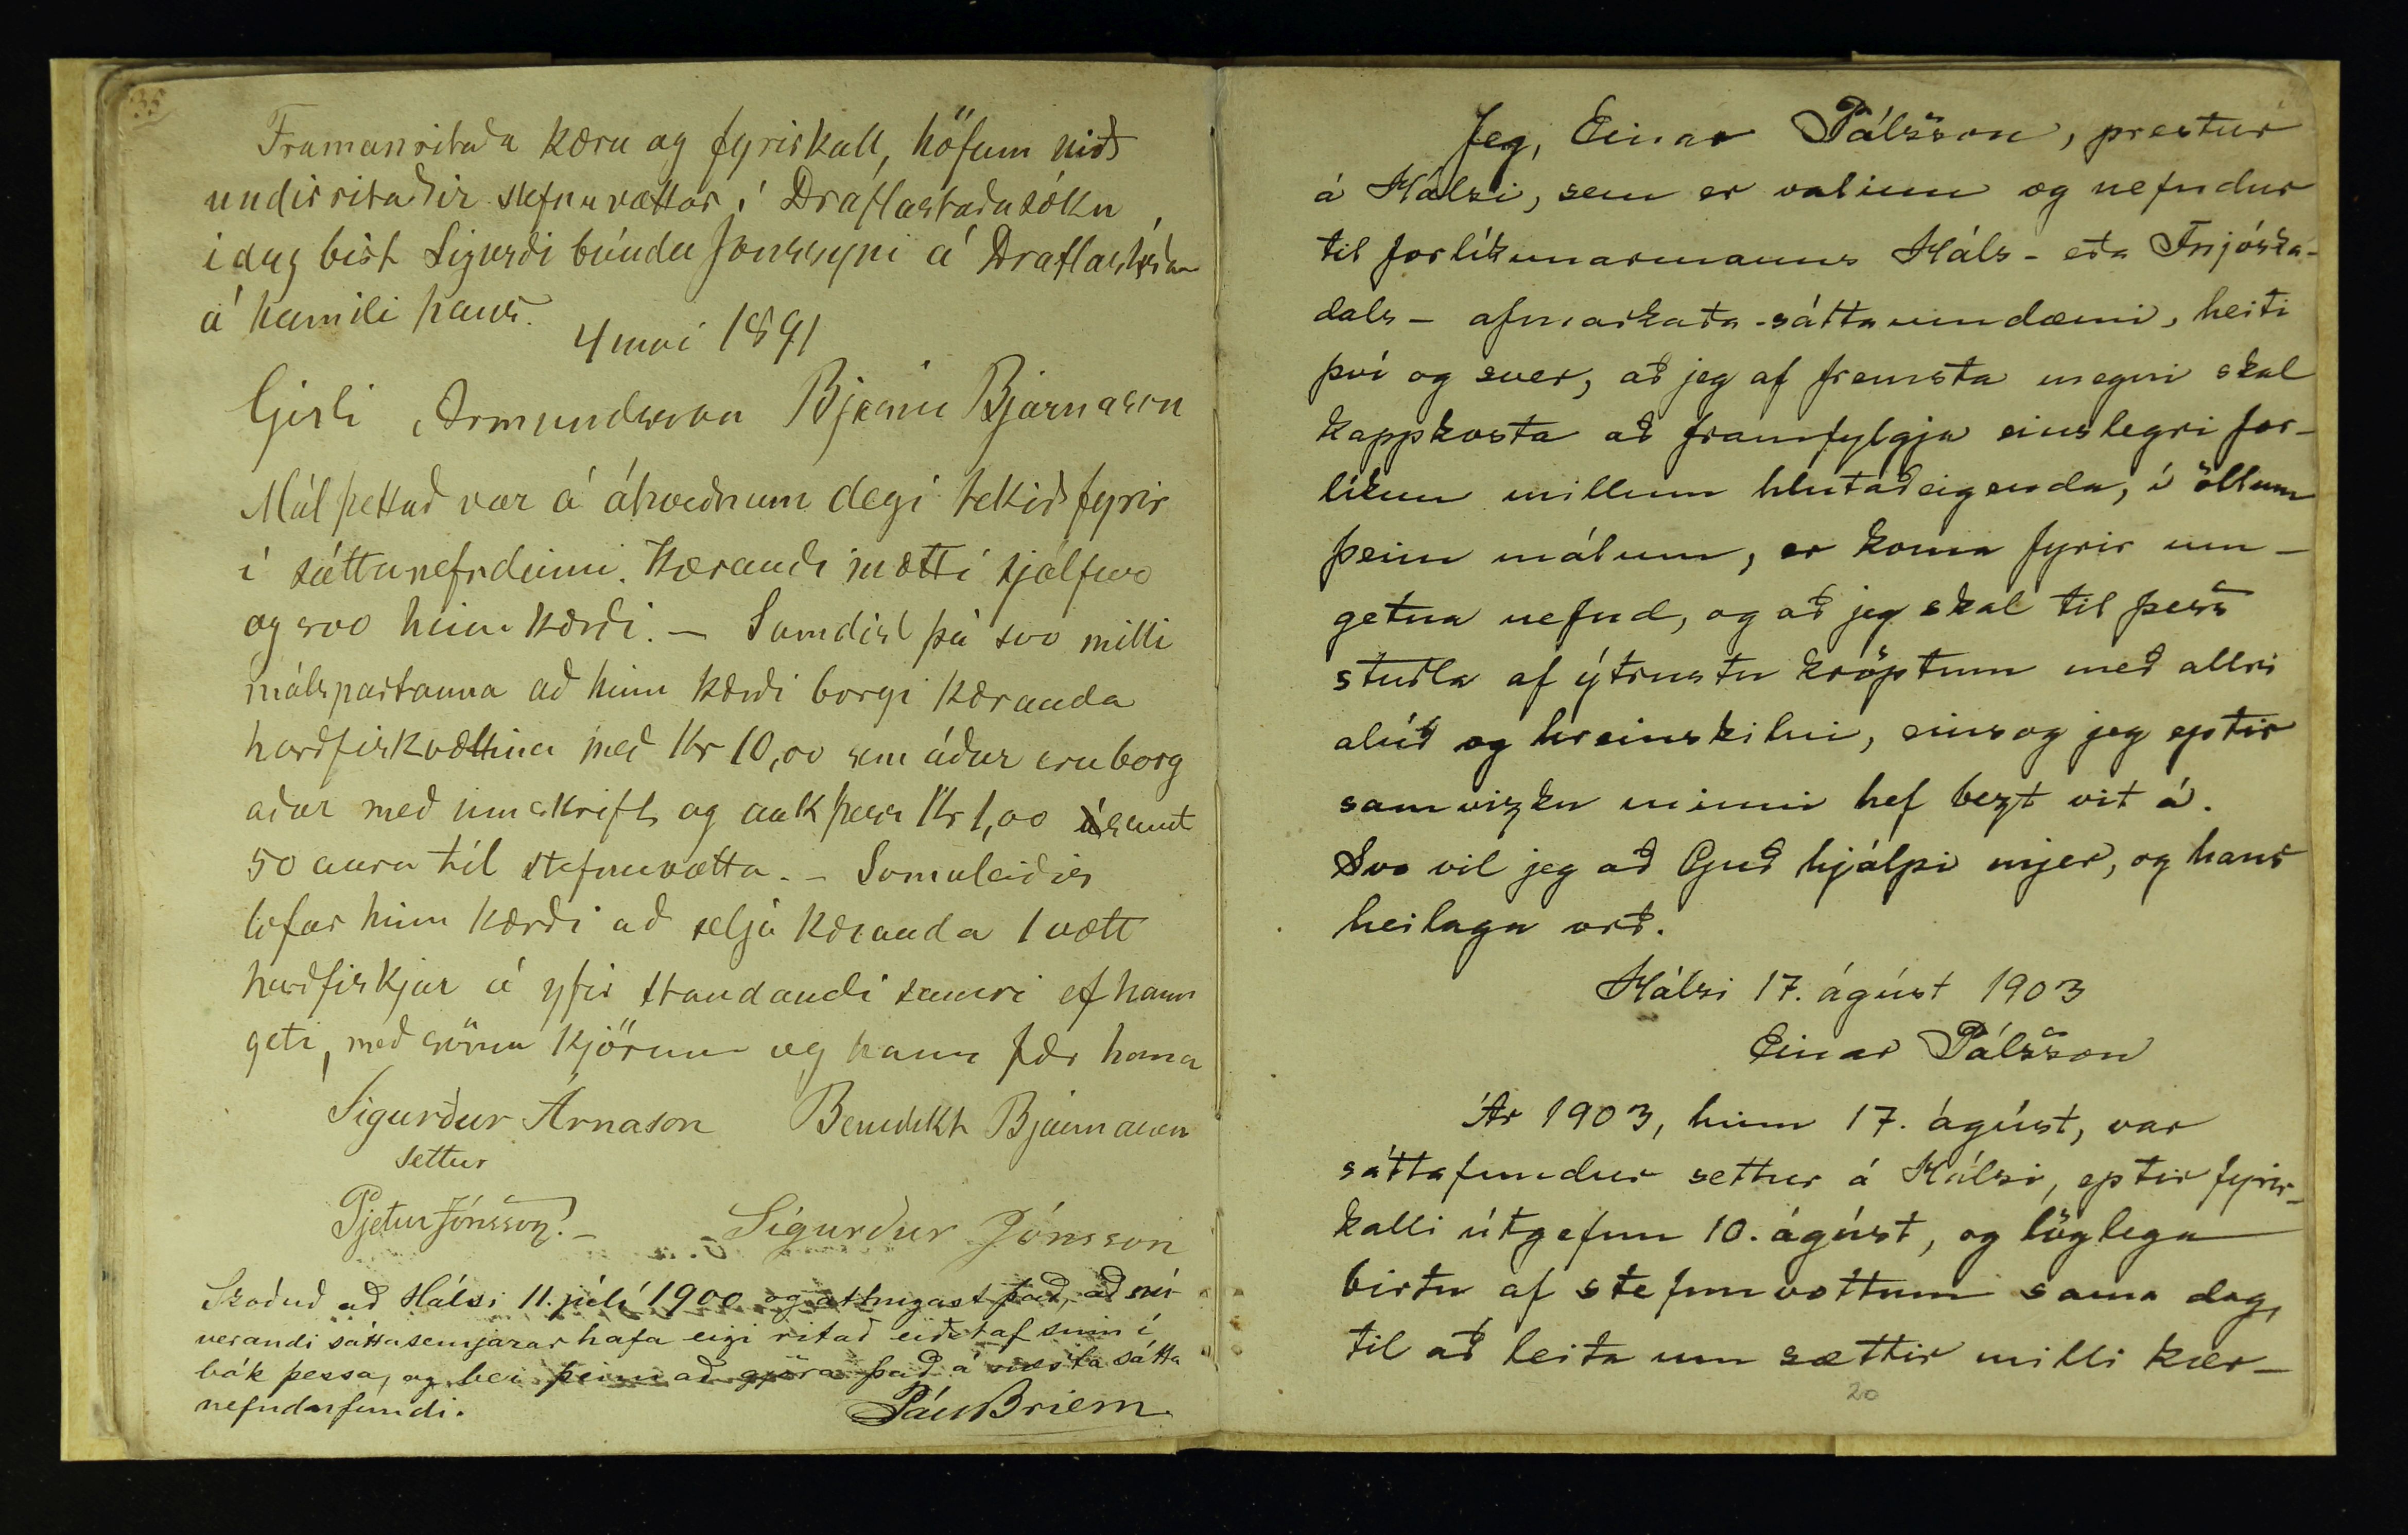 35
Framanritaða kæru og fyriskall, höfum við
undirritaðir stefnuvottar í Draflastaðasókn
í dag birt Sigurði bónda Jónssyni á Draflastöðum
á heimili hans.
4 maí 1891
Gisli Asmundsson Bjarni Bjarnason
Mál þettað var á ákveðnum degi tekið fyrir
í sáttanefndinni. Kærandi mætti sjálfur
og svo hinn kærði. — Samdist þá svo milli
málspartanna að hinn kærði borgi kæranda
harðfiskvættina með Kr 10,00 sem áður eru borg
aðar með innskrift og auk þess Kr 1,00 ásamt
50 aura til stefnuvotta. — Sömuleiðis
lofar hinn kærði að selja kæranda 1 vætt
harðfiskjar á yfir standandi sumri ef hann
geti, með sömu kjörum og hann fær hana
Sigurður Árnason Benedikt Bjarnason
settur
Pjetur Jónsson. — Sigurður Jónsson
Skoðuð að Hálsi 11. júlí 1900 og athugast það, að nú-
verandi sáttasemjarar hafa eigi ritað eiðstaf sinn í
bók þessa, og ber þeim að gjöra það á næsta sátta
nefndarfundi.
Páll Briem
Jeg, Einar Pálsson, prestur
á Hálsi, sem er valinn og nefndur
til forlíkunarmanns Háls - eða Fnjóska-
dals - afmarkaða - sáttaumdæmi, heiti
því og sver, að jeg af fremsta megni skal
kappkosta að framfylgja einslegri for-
líkun millum hlutaðeigenda, í öllum
þeim málum, er koma fyrir um-
getna nefnd, og að jeg skal til þess
stuðla af ýtrustu kröptum með allri
alúð og hreinskilni, eins og jeg eptir
samvizku minni hef bezt vit á.
Svo vil jeg að Guð hjálpi mjer, og hans
heilaga orð.
Hálsi 17. ágúst 1903
Einar Pálsson
Ár 1903, hinn 17. ágúst, var
sáttafundur settur á Hálsi, eptir fyrir-
kalli útgefnu 10. ágúst, og löglega
birtu af stefnuvottum sama dag,
til að leita um sættir milli kær-
20